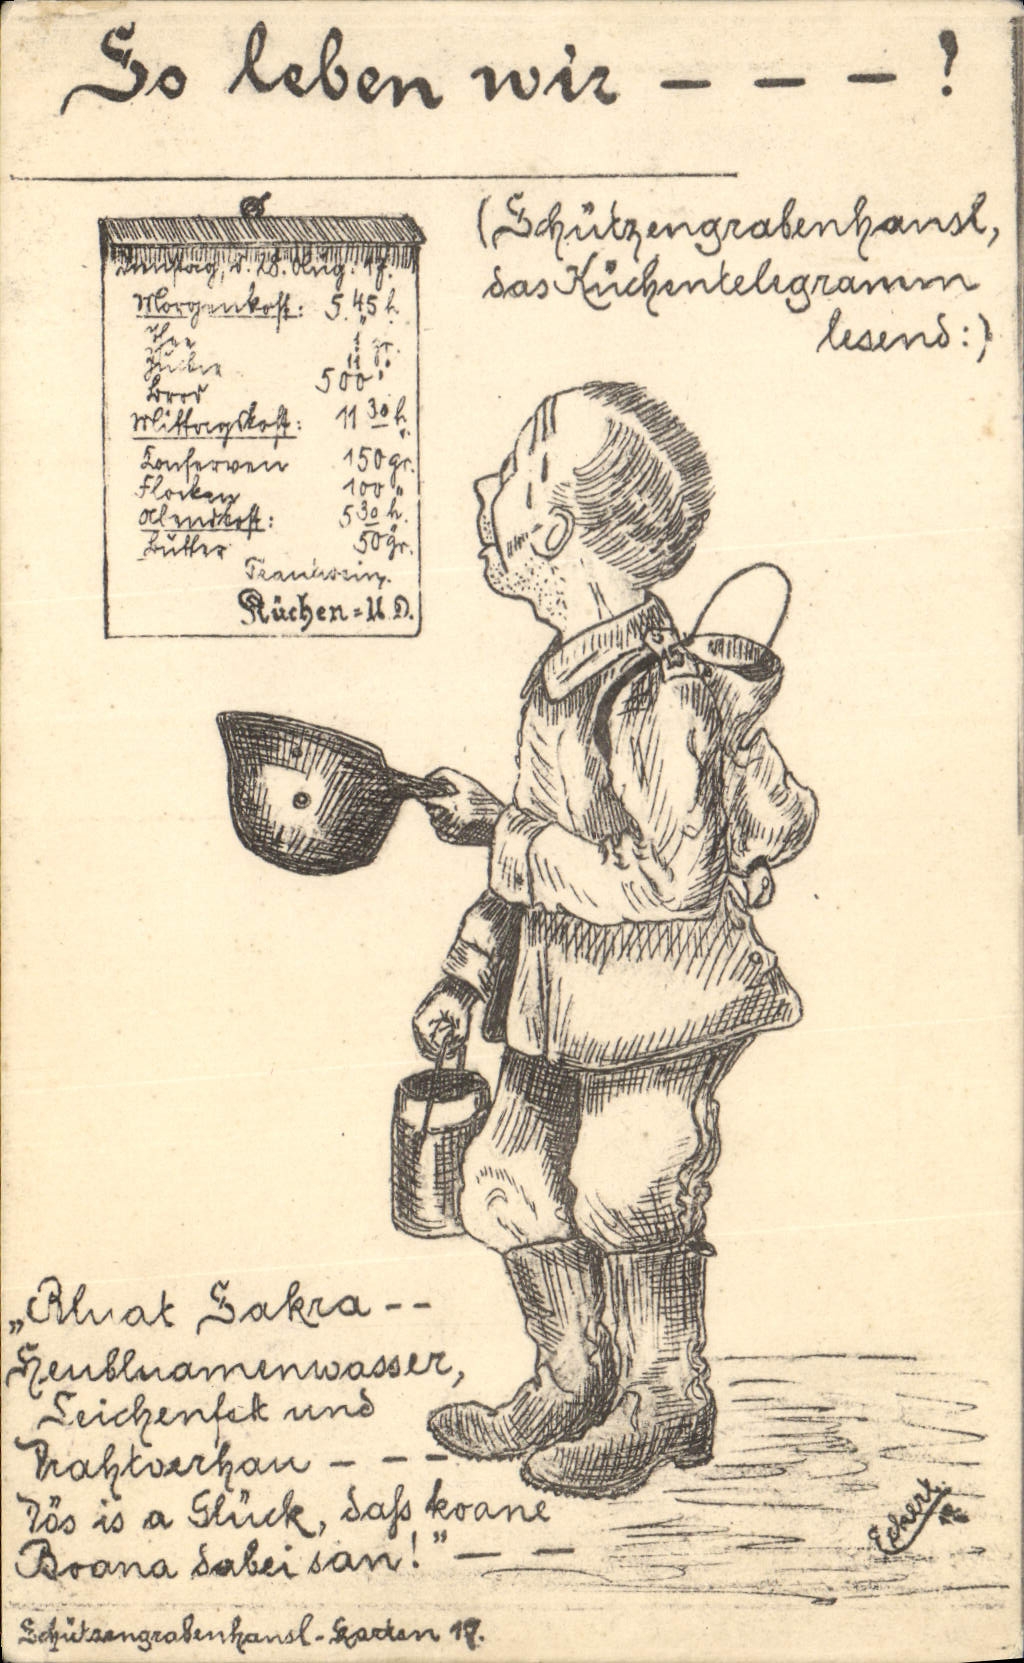 So leben wir – – – !
(Schützengrabenhansl,
das Küchentelegramm
lesend:)
d. 28. Aug. 17.
Morgenkost: 5.45 h.
Thee 1 gr.
Zucker 11 "
Brod 500 "
Mittagskost: 11 30 h.
Konserven 150 gr.
Flocken 100 "
Abendkost: 5 30 h.
Butter 50 gr.
Küchen=U.D.
15
„Bluat Sakra --
Heubluamenwasser,
Leichenfett und
Drahtverhau – – –
Dös is a Glück, daß koane
Boana dabei san!" – –
Eckert
Schützengrabenhansl-Karten 17.